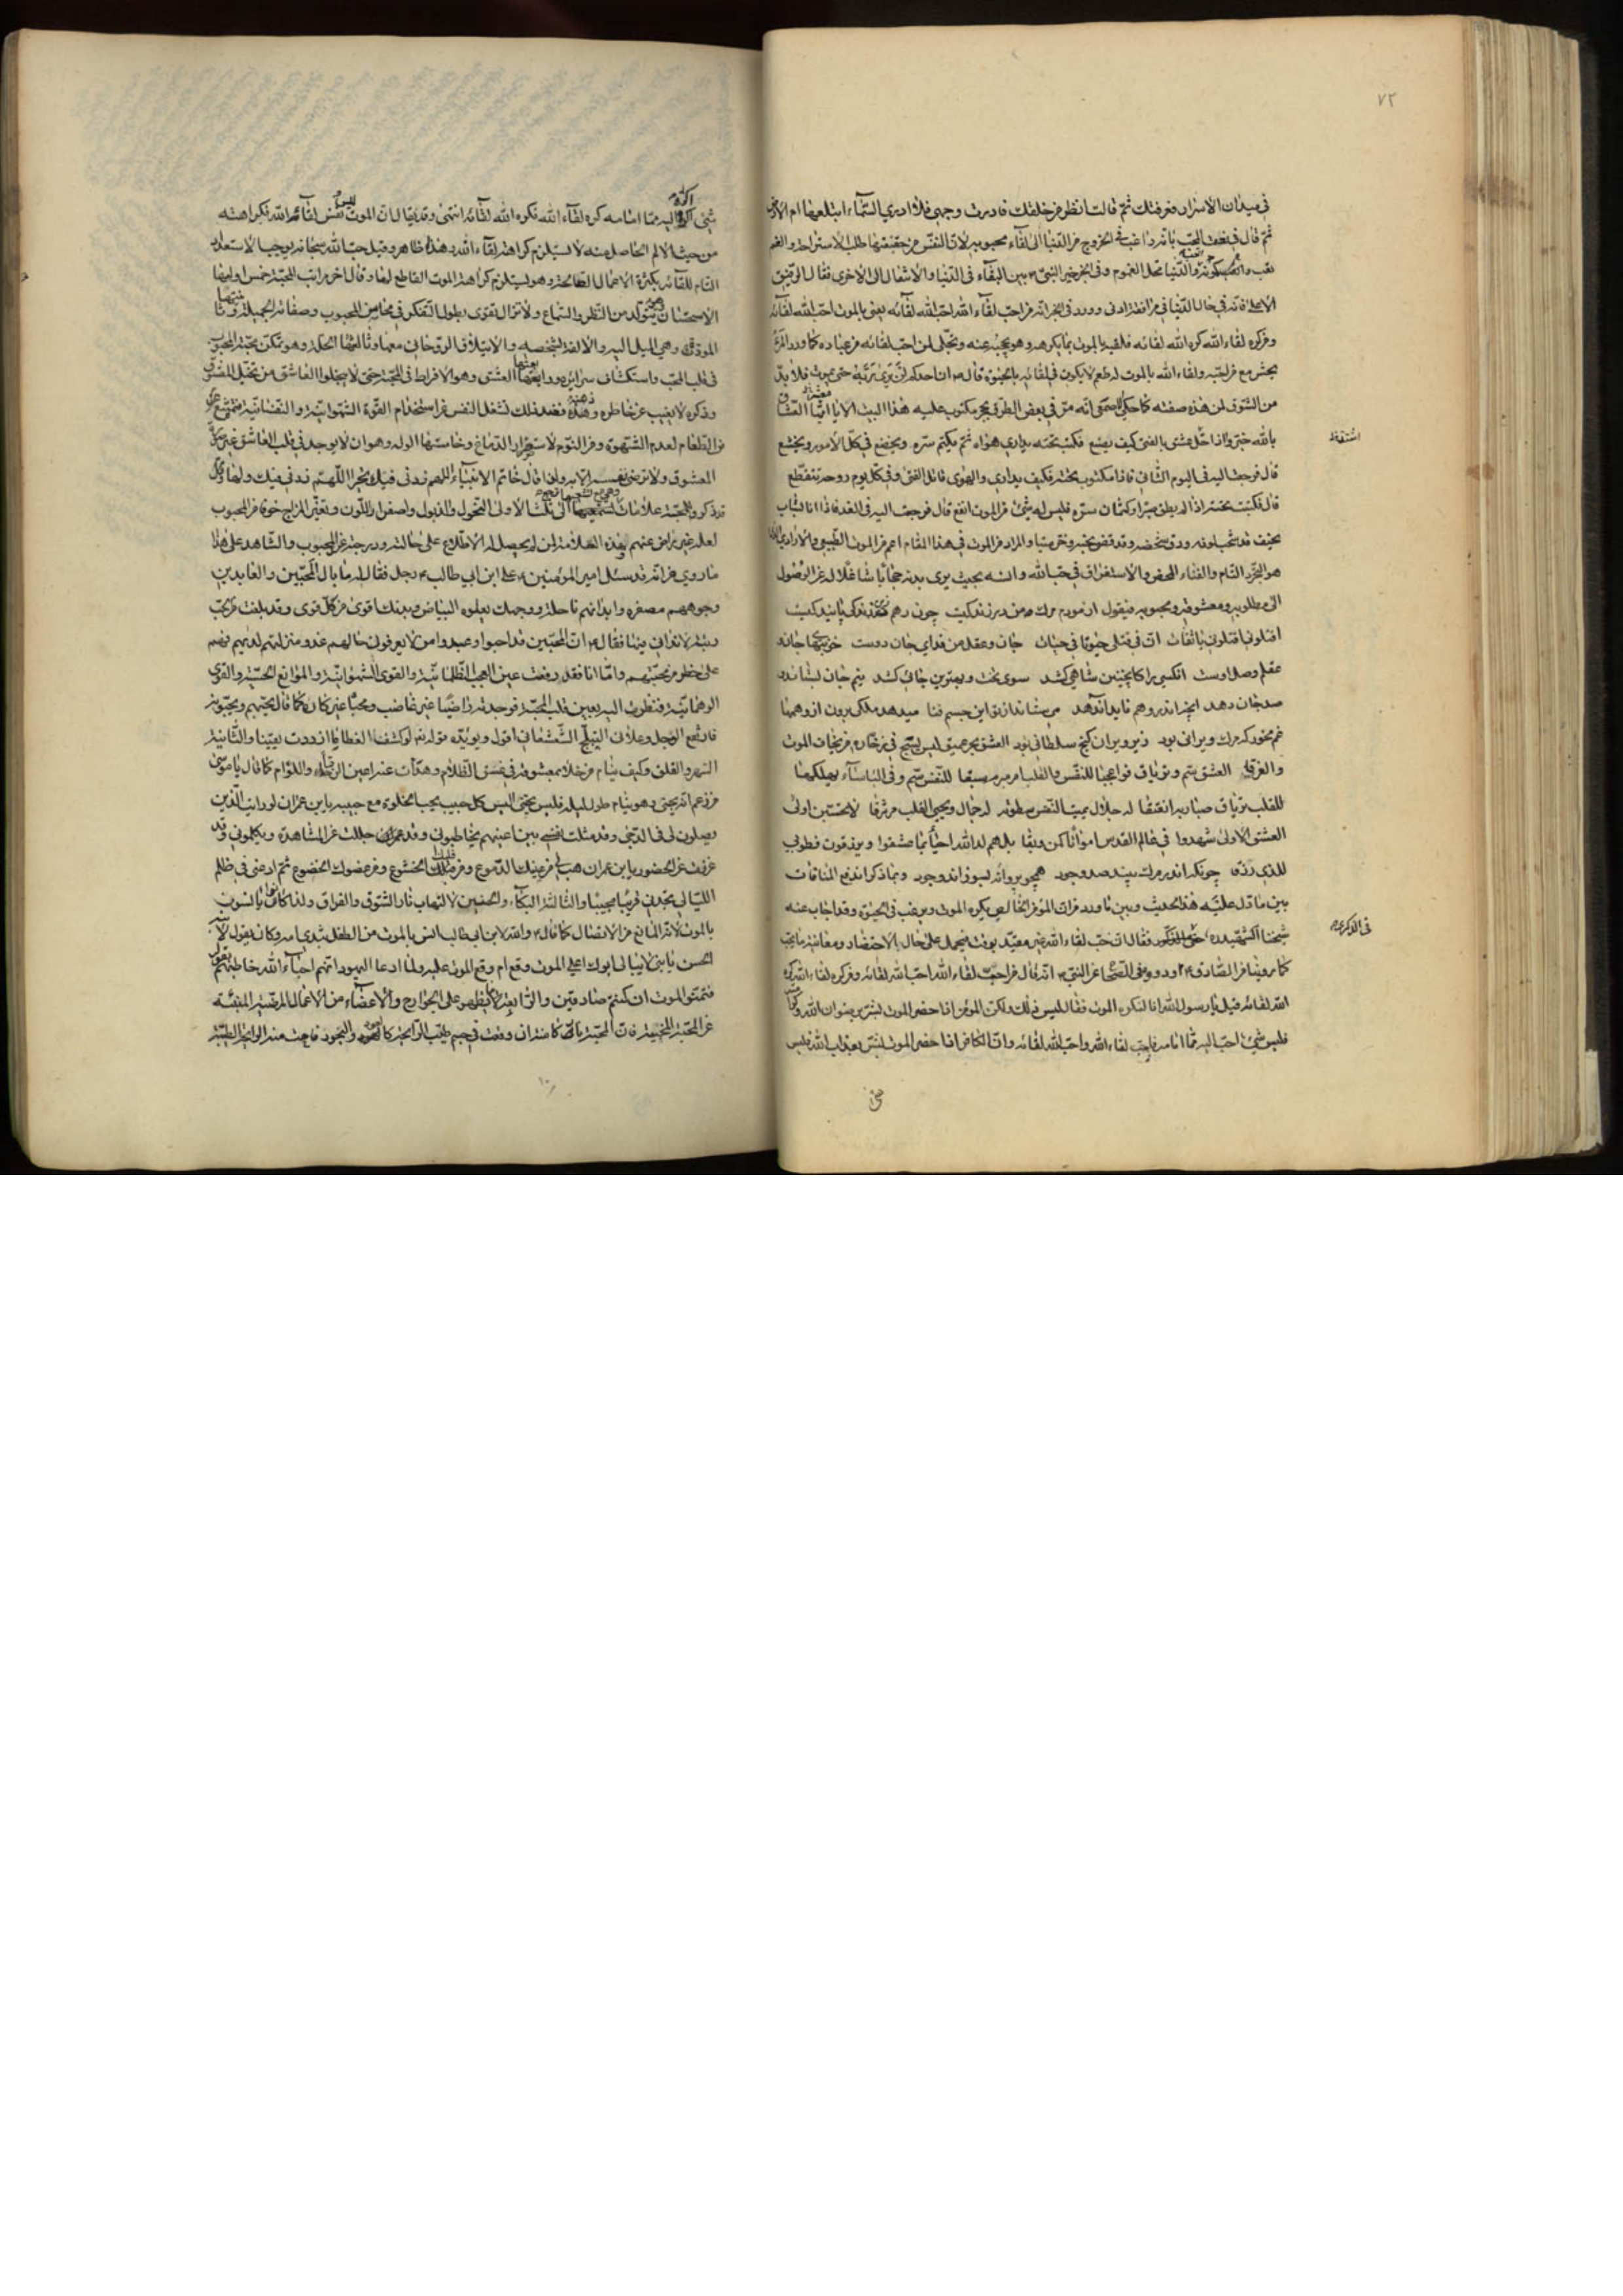 ٧٢
في ميدان الاسرار فعرفتك ثم قالت انظر من خلفك فادرت وجهي فلا ادري السماء ابتلعها ام الارض
ثم قال في نعت المحب بانه راغب في الخروج من الدنيا الى لقاء محبوبه لان النفس من حقيقتها طلب الاستراحة والغم
تعب والدنيا محل الغموم وفي الخبر خير النبي بين البقاء في الدنيا والانتقال الى الاخرى فقال الرفيق
الاعلى فانه في حال الدنيا في مرافقة ادنى وورد في الخبر انه من احب لقاء الله احب الله لقائه يعني بالموت احب الله لقائه
ومن كره لقاء الله كره الله لقائه فلقيه بالموت بما يكرهه وهو يحجبه عنه وتجلى لمن احب لقائه من عباده كما ورد
ولقاء الله بالموت له طعم لا يكون في لقائه بالحيوة قال ان احدكم لن يرى ربه حتى يموت فلا بد
من الشوق لمن هذه صفته كما حكي الاصمعي انه مر في بعض الطرق بحجر مكتوب عليه هذا البيت الا يا ايها العشاق
بالله خبروا اذا حل عشق بالفتى كيف يصنع فكتب تحته يداري هواه ثم يكتم سره ويخضع في كل الامور ويخشع
اشقطة
قال فرجعت اليه في اليوم الثاني فاذا مكتوب تحته فكيف يداري والهوى قاتل الفتى وفي كل يوم روحه تتقطع
قال فكتبت تحته اذا لم يطق صبرا وكتمان سره فليس له شئ من الموت انفع قال فرجعت اليه في الغد فاذا انا بشاب
نحيف قد ودق شخصه وقد قضى نحبه وخر ميتا والمراد من الموت في هذا المقام اعم من الموت الطبيعي والارادي
هو التجرد التام والفناء المحض والاستغراق في حب الله وانسه بحيث يرى بدنه حجابا شاغلا له عن الوصول
الى مطلوبه ومعشوقه ومحبوبه فيقول آزمودم مرگ من در زندگيست چون رهم زين زندگي پايندگيست
اقتلوني اقتلوني يا ثقات ان في قتلي حيوتا في حيات جان وعقل من فداي جان دوست خونبها
عقلم وصل اوست آنكسي را كاينچنين شاهي كشد سوي تخت وبهترين جائي كشد نيم جان بستاند و
صد جان دهد آنچه اندر وهم نايد آن دهد
غم مخور كه مرگ ويراني بود زير ويران گنج سلطاني بود العشق بحر عميق ليس ينج في زخاره من نجات الموت
والغرق العشق سم وترياق فواعجبا للنفس والقلب للنفس سم وفي البأساء يهلكها
للقلب ترياق جلال يميت النفس سطوته له جمال ويحيي القلب لا تحسبن اولى
العشق الاولى شهدوا في عالم القدس امواتا بل هم لدى الله احيا بما عشقوا ويرزقون فطوبى
للذي رزقا چونكه اندر مرگ بيند صد وجود همچو پروانه بسوزاند وجود وبما ذكر اندفع المنافات
بين ما دل عليه هذا الحديث وبين ما ورد من ان المؤمن الخالص يكره الموت ويرغب في الحيوة وقد اجاب عنه
شيخنا الشهيد ره فقال ان حب لقاء الله غير مقيد بوقت فيحمل على حال الاحتضار ومعاينة ما يحب
في الذكرى
كما روينا عن الصادق ورووه في الصحاح عن النبي انه قال من احب لقاء الله احب الله لقائه ومن كره لقاء الله كره
الله لقائه قيل يا رسول الله انا لنكره الموت فقال ليس ذلك ولكن المؤمن اذا حضره الموت بشر برضوان الله وكرامته
فليس شئ احب اليه مما امامه فاحب لقاء الله واحب الله لقائه وان الكافر اذا حضره الموت بشر بعذاب الله فليس
شئ
شئ اكره اليه مما امامه كره لقاء الله فكره الله لقائه انتهى وقد يقال ان الموت ليس نفس لقاء الله فكراهته
من حيث الالم الحاصل منه لا يستلزم كراهة لقاء الله وهذا ظاهر وقيل حب الله سبحانه يوجب الاستعداد
التام للقائه بكثرة الاعمال الصالحة وهو يستلزم كراهة الموت القاطع لها وقال اخر مراتب المحبة خمس اولها
الاستحسان ويتولد من النظر والسماع ولا تزال تقوى بطول التفكر في محاسن المحبوب وصفاته الجميلة وثانيتها
المودة وهي الميل اليه والالفة بشخصه والايتلاف الروحاني معها وثالثها الخلة وهو تمكن محبة المحبوب
في قلب المحب واستكشاف سرائره ورابعتها العشق وهو الافراط في المحبة حتى لا يخلو العاشق من تخيل المعشوق
وذكره لا يغيب عن خاطره وذهنه فعند ذلك تشغل النفس عن استخدام القوة الشهوانية والنفسانية فتمنع
من الطعام لعدم الشهوة ومن النوم لاستضرار الدماغ وخامستها الوله وهو ان لا يوجد في قلب العاشق غير
المعشوق ولا ترضى نفسه الا به ولذا قال خاتم الانبياء اللهم زدني فيك تحيرا اللهم زدني فيك ولها
قد ذكروا للمحبة علامات الاولى النحول والذبول واصفرار اللون وتغير المزاج خوفا من المحبوب
لعله غير راض عنهم بهذه العلامة لمن لم يحصل له الاطلاع على حالته ودرجته عند المحبوب والشاهد على هذا
ما روي من انه قد سئل امير المؤمنين علي ابن ابي طالب رجل فقال له ما بال المحبين والعابدين
وجوههم مصفرة وابدانهم ناحلة ووجهك يعلوه البياض وبدنك اقوى من كل قوي وقد بلغت من الحب
رتبة لا تدانى فيها فقال ان المحبين قد احبوا وعبدوا من لا يعرفون حالهم عنده ومنزلتهم لديه فهم
على خطر من محبتهم واما انا فقد رفعت عين الحجب الظلمانية والقوى الشهوانية والموانع الحسية والقوى
الوهمانية فنظرت اليه بعين قلب المحبة فوجدته راضيا غير غاضب ومحبا غير كاره كما قال يحبهم ويحبونه
فارتفع الوجل وعلاني اقول ويؤيده قوله لو كشف الغطاء ما ازددت يقينا والثانية
السهر والقلق وكيف ينام من خلا بمعشوقه في غسق الظلام وهدأت عنه اعين الرقباء واللوام كما قال يا موسى
من زعم انه يحبني وهو ينام طول ليله فليس يحبني اليس كل حبيب يحب الخلوة مع حبيبه يابن عمران لو رايت الذين
يصلون لي في الدجى وقد مثلت نفسي بين اعينهم يخاطبوني وقد جللت عن المشاهدة ويكلموني وقد
عززت عن الحضور يابن عمران هب لي من عينك الدموع ومن قلبك الخشوع ومن عضوك الخضوع ثم ادعني في ظلم
الليالي تجدني قريبا مجيبا والثالثة البكاء والحنين لالتهاب نار الشوق والفراق ولذا كانوا يانسون
بالموت لانه المانع من الاتصال كما قال والله لابن ابي طالب انس بالموت من الطفل بثدي امه وكان يقول لابنه
الحسن يا بني لا يبالي ابوك اعلى الموت وقع ام وقع الموت عليه ولما ادعا اليهود انهم احباء الله خاطبهم بقوله
فتمنوا الموت ان كنتم صادقين والرابعة ظهوره على الجوارح والاعضاء من الاعمال المرضية المنبئة
عن المحبة فان المحبة نار وقعت في جسم طيب الرايحة كالعود والبخور فاحت منه الروايح الطيبة